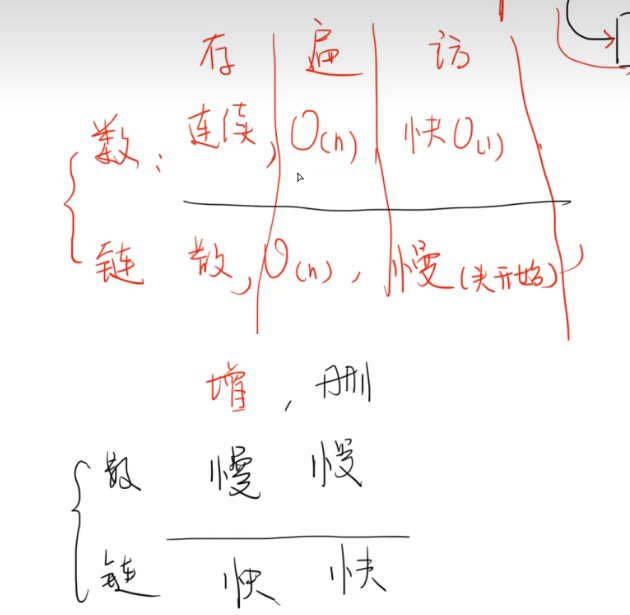 存 遍 访
数: 连续, O(n) 快O(1)
链 散, O(n), 慢(头开始)
增, 删
数 慢 慢
链 快 快